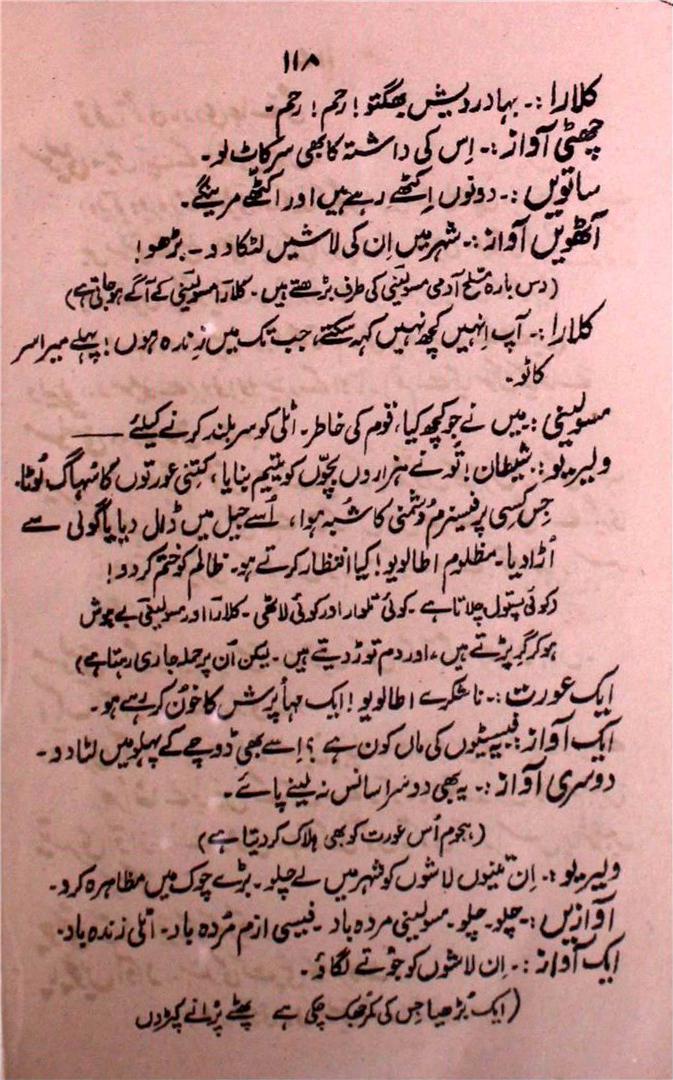 ۱۱۸
کلارا:۔ بہادر دیش بھگتو! رحم! رحم۔
چھٹی آواز:۔ اِس کی داشتہ کا بھی سر کاٹ لو۔
ساتویں:۔ دونوں اِکٹھے رہے ہیں اور اکٹھّے مرینگے۔
آٹھویں آواز:۔ شہر میں اِن کی لاشیں لٹکا دو۔ بڑھو!
(دس بارہ مسّلح آدمی مسولینی کی طرف بڑھتے ہیں۔ کلارا مسولینی کے آگے ہو جاتی ہے)
کلارا:۔ آپ اِنہیں کچھ نہیں کہہ سکتے، جب تک میں زندہ ہوں! پہلے میرا سر
کاٹو۔
مسولینی:۔ میں نے جو کچھ کیا، قوم کی خاطر۔ اٹلی کو سر بلند کرنے کیلئے ——
ولیریو:۔ شیطان! تُو نے ہزاروں بچّوں کو یتیم بنایا، کِتنی عورتوں کا سُہاگ لُوٹا۔
جِس کسی پر فیسزم دُشمنی کا شُبہ ہوا، اُسے جیل میں ڈال دیا یا گولی سے
اُڑا دیا۔ مظلوم اطالویو! کیا انتظار کرتے ہو۔ ظالم کو ختم کر دو!
(کوئی پستول چلاتا ہے۔ کوئی تلوار اور کوئی لاٹھی۔ کلارا اور مسولینی بے ہوش
ہو کر گِر پڑتے ہیں، اور دم توڑ دیتے ہیں۔ لیکن اُن پر حملہ جاری رہتا ہے)
ایک عورت:۔ ناشکرے اطالویو! ایک مہاپُرش کا خُون کر رہے ہو۔
ایک آواز: فیسیٹیوں کی ماں کون ہے؟ اِسے بھی ڈوچے کے پہلو میں لٹا دو۔
دوسری آواز:۔ یہ بھی دوسرا سانس نہ لینے پائے۔
(ہجوم اُس عورت کو بھی ہلاک کر دیتا ہے)
ولیریو:۔ اِن تینوں لاشوں کو شہر میں لے چلو۔ بڑے چوک میں مظاہرہ کرو۔
آوازیں:۔ چلو۔ چلو۔ مسولینی مردہ باد۔ فیسی ازم مُردہ باد۔ اٹلی زندہ باد۔
ایک آواز:۔ اِن لاشوں کو جُوتے لگاؤ۔
(ایک بُڑھیا جِس کی کمر جھک چکی ہے پھٹے پرُانے کپڑوں